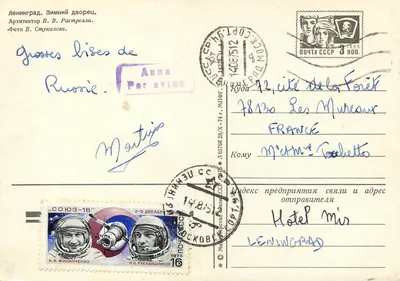 Ленинград. Зимний дворец.
Архитектор В. В. Растрелли.
Фото В. Стукалова.
Grosses bises de
Russie.
Авиа
Par avion
ПОЧТА СССР 3 КОП.
Куда 72, cité de la Forêt
78130 Les Mureaux
FRANCE
Кому
Индекс предприятия связи и адрес
отправителя
Hotel Mir
LENINGRAD
СОЮЗ-16
2-8 ДЕКАБРЯ
А.В. ФИЛИПЧЕНКО
Н.Н. РУКАВИШНИКОВ
16